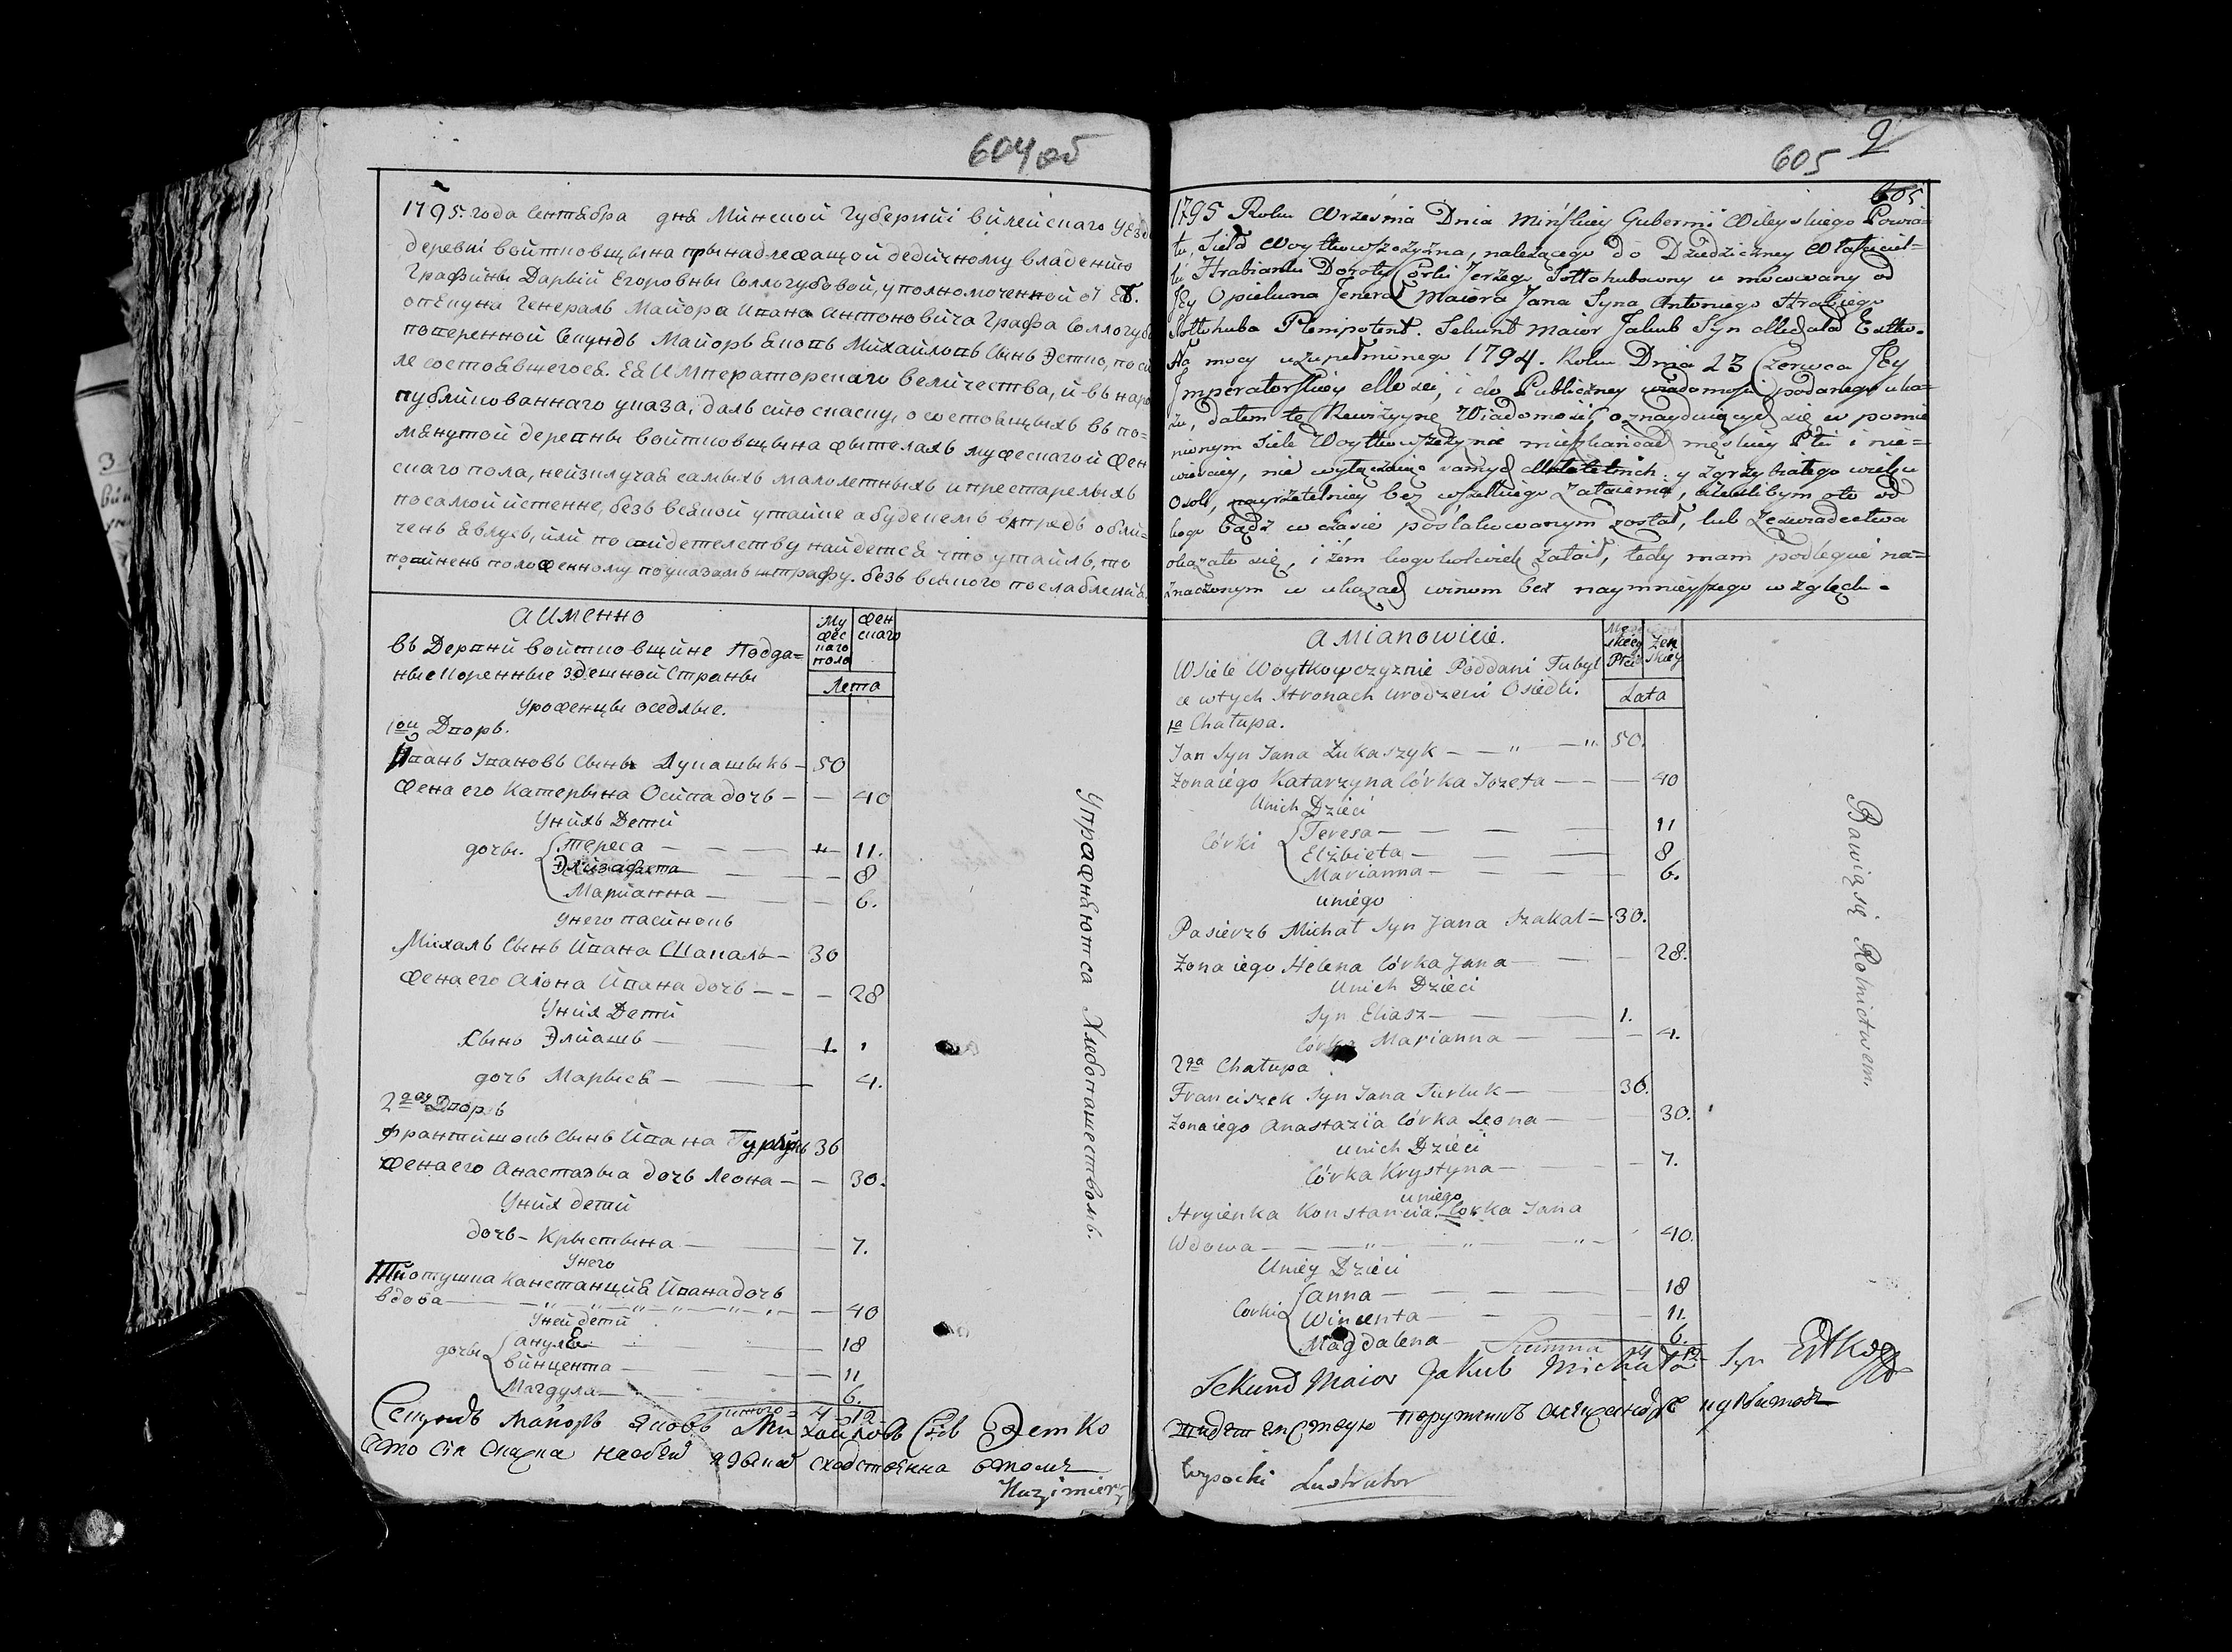 604 об
1795. года Сентября дня Минской Губернiи Вилейскаго Уез
деревнi Войтковщызна прынадлежащой дедичному владению
Графины Дарьiи Егоровны Соллогубовой, уполномоченной от Её
опекуна Генералъ Майора Ивана Антоновича Графа Соллогуба
поверенной Секундъ Майоръ Яковъ Михайловъ Сынъ Эетко, по си
ле состоявшегося. Ея Императорскаго Величества, и въ наро
публикованнаго указа, далъ сию скаску, о состоящыхъ въ по=
мянутой деревны Войтковщызна жытеляхъ мужескаго и жен
скаго пола, неизключая самыхъ малолетныхъ и престарелыхъ
по самой истенне, безъ всякой утайке а буде кемъ впредь обли-
ченъ явлусь, или по свидетелству найдется что утаилъ, то
повиненъ положенному по указамъ штрафу. безъ всякого послабленiя.
А Именно
Му
жес
каго
пола
жен
скаго
Лета
Въ Деревни Войтковщине Подда=
ные Коренные здешной Страны
Уроженцы оседлые.
1ой Дворъ.
Иванъ Ивановъ Сынъ Лукашыкъ — 50
Жена его Катерына Осипа дочь — — 40
У нихъ Дети
дочьи. Тереса — — — 11.
Элизабета — — 8
Марианна — — 6.
У него пасинокъ
Михалъ Сынъ Ивана Шакаль — 30
Жена его Алона Ивана дочь — — 28
У них Дети
Сынъ Элиашъ — — 1.
дочь Марыся — — 4.
2гой Дворъ
Францишокъ Сынъ Ивана Турлукъ 36
Жена его Анастазыа дочь Леона — — 30.
У них дети
дочь — Крыстына — — 7.
У него
Тиотушка Канстанция Ивана дочь
вдова — „ — „ — „ — 40
У ней дети
дочьи Ануля — — 18
Винцента — — 11
Магдула — — 6.
итого = 4 = 12
Упражняютса Хлебопашествомъ.
Секундъ Маиоръ Яковъ Михайловъ Снъ Эетко
Что сiя Скаска
сходственна
Kazimierz
605 2
605
1795 Roku Września Dnia Mińskiey Gubernii Wileyskiego Powia=
tu, Sieła Woytkowszczyzna, należącego do Dziedziczney Właściciel=
ki Hrabianki Doroty Córki Jerzego Sołłohubowny u mocowany od
Jey Opiekuna Jenerał Maiora Jana Syna Antoniego Hrabiego
Sołłohuba Plenipotent. Sekunt Maior Jakub Syn Michała Eetko.
Na mocy uzupełnionego 1794. Roku Dnia 23 Czerwca Jey
Imperatorskiey Mości, i do Publiczney wiadomości podanego uka=
zu, dałem tę Rewizyynę Wiadomość, o znayduiących się w pomie
nionym Siele Woytkowszczyznie mieszkańcach męskiey Płci i nie=
wieściey, nie wyłączaiąc samych Małoletnich y zgrzybiałego wieku
Osob, nayrzetelniey bez wszelkiego zataienia, a ieslibym oto od
kogo bądź w czasie poślakowanym został, lub ze świadectwa
okazało się, iżem kogokolwiek zataił, tedy mam podlegać na=
znaczonym w ukazach winom bez naymnieyszego względu.
A Mianowicie.
Męż
skiey
Płci
Żeń
skiey
Lata
W siele Woytkowczyznie Poddani Tubyl
ce w tych Stronach urodzeni Osiedli.
1a Chałupa.
Jan Syn Jana Łukaszyk — — „ — „ 50.
Żona iego Katarzyna Córka Józefa — — — 40
U nich Dzieci
Córki Teresa — — — — 11
Elżbieta — — — 8
Marianna — — — 6.
u niego
Pasierzb Michał Syn Jana Szakal — 30.
Żona iego Helena Córka Jana — — 28.
U nich Dzieci
Syn Eliasz — — 1.
Córka Marianna — — 4.
2ga Chałupa
Franciszek Syn Jana Turluk — 36.
Żona iego Anastazia Córka Leona — 30.
u nich Dzieci
Córka Krystyna — — 7.
u niego
Stryienka Konstancia Córka Jana
Wdowa — — „ — „ — „ — 40.
U niey Dzieci
Corki Anna — — — — 18
Wincenta — — — 11.
Magdalena — 6.
Summa 4 12
Bawią się Rolnictwem.
Sekund Maior Jakub Michała Syn Eetko
Wysocki Lustrator